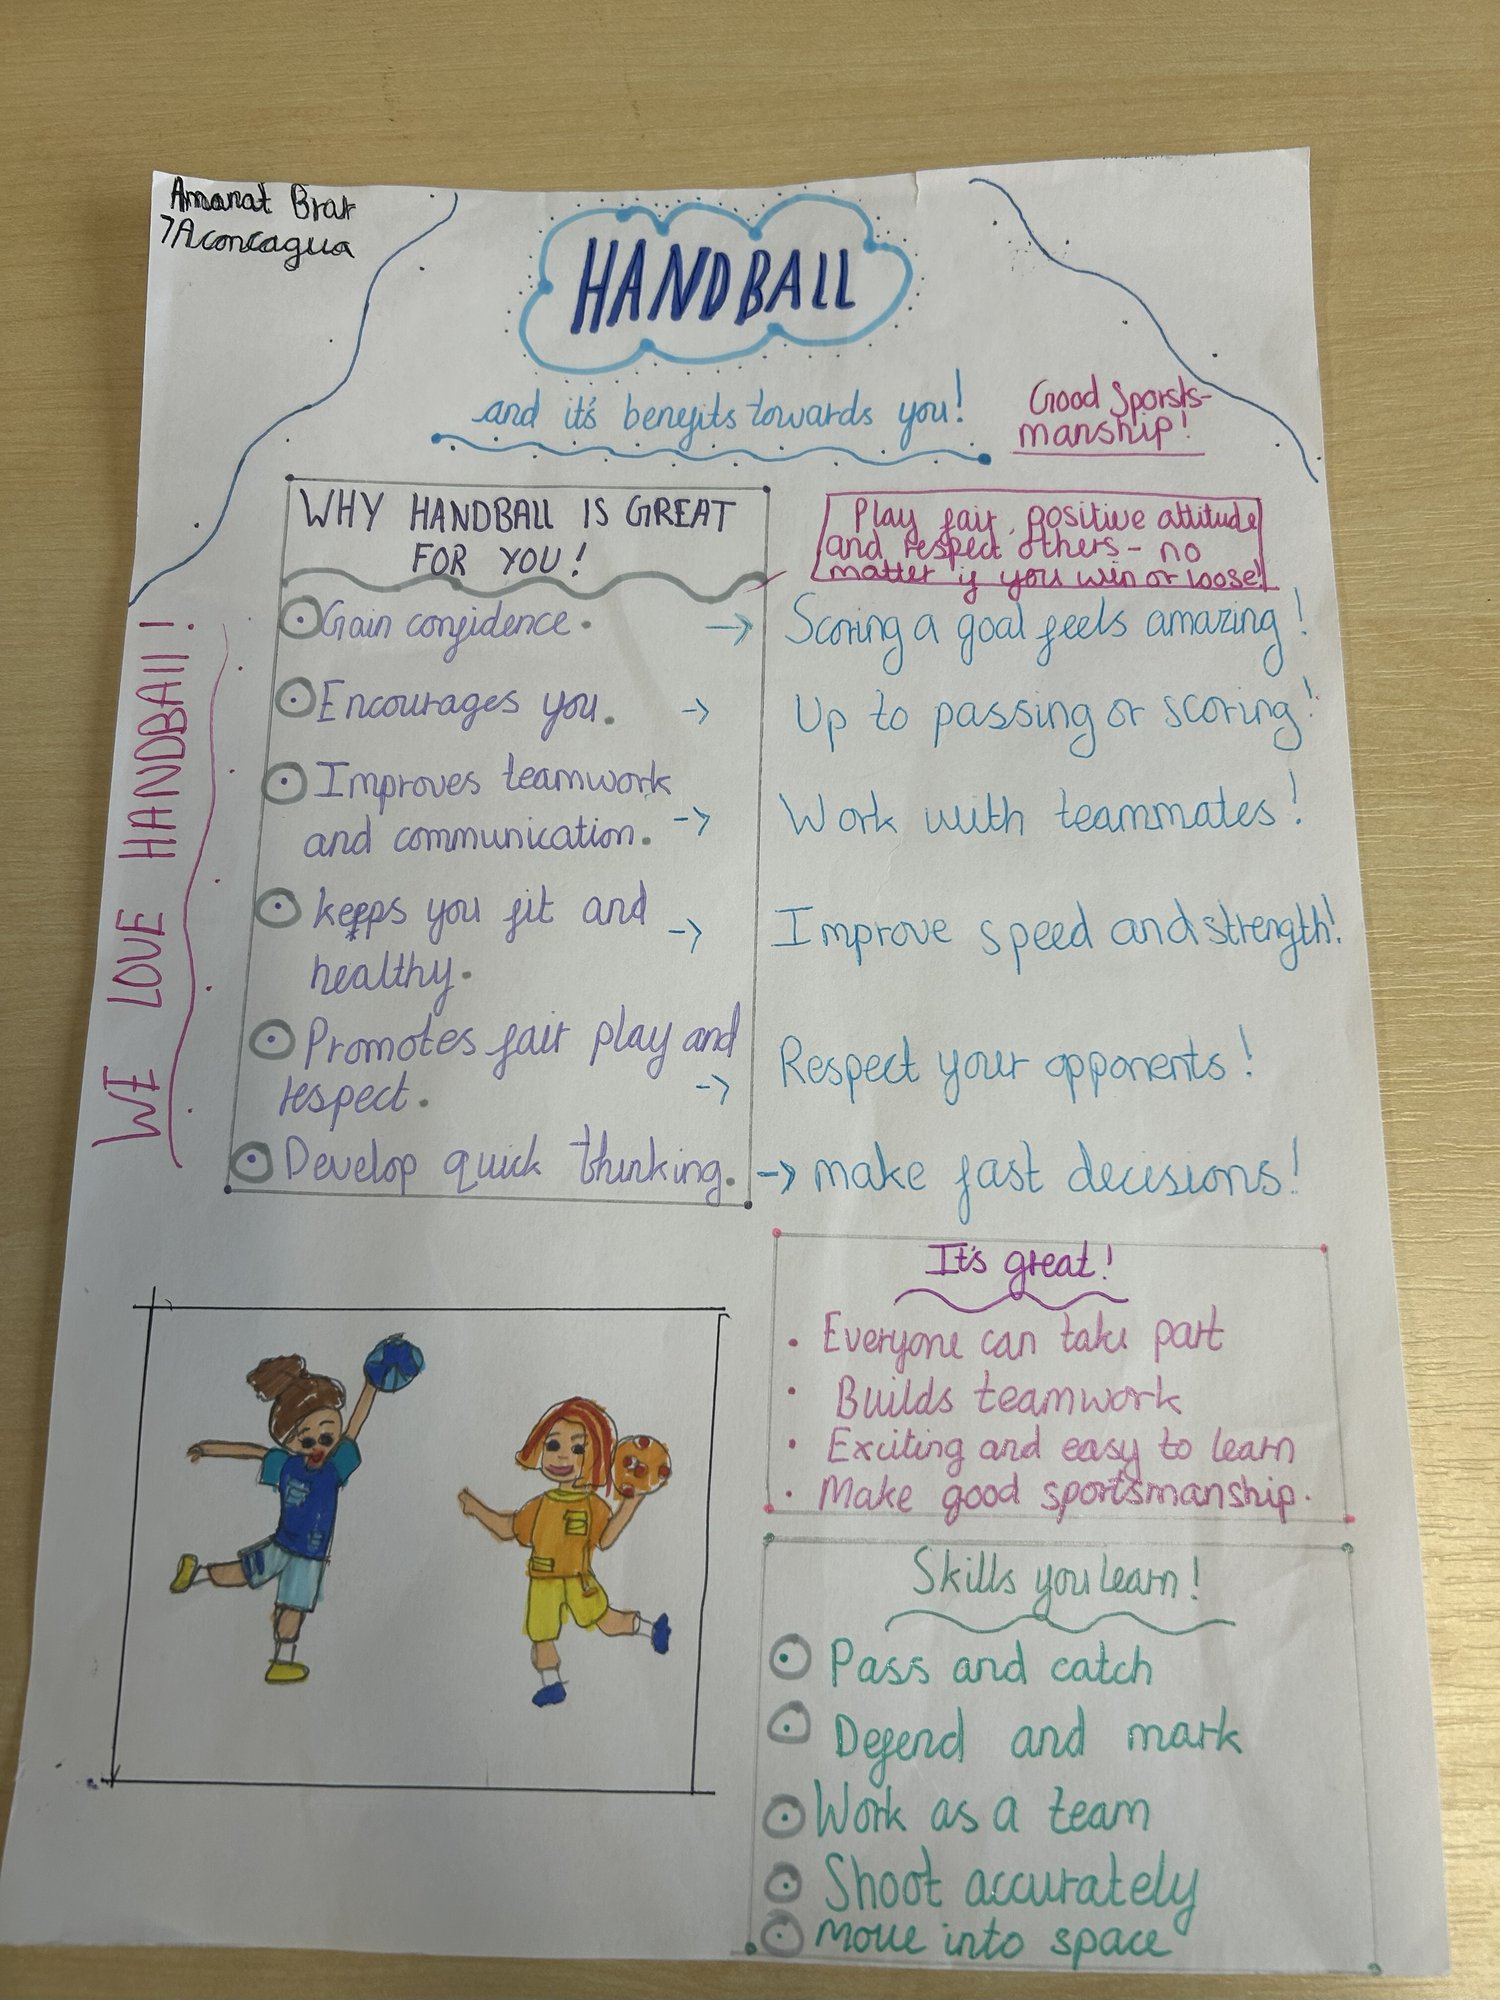 Amanat Brar
7Aconcagua
HANDBALL
and it's benefits towards you!
Good Sports-
manship!
WHY HANDBALL IS GREAT
FOR YOU!
Play fair, positive attitude
and respect others - no
matter if you win or loose!
WE LOVE HANDBAll!
Gain confidence. → Scoring a goal feels amazing!
Encourages you. → Up to passing or scoring!
Improves teamwork
and communication. → Work with teammates!
keeps you fit and → Improve speed and strength!
healthy.
Promotes fair play and
respect. → Respect your opponents!
Develop quick thinking. → make fast decisions!
It's great!
• Everyone can take part
• Builds teamwork
• Exciting and easy to learn
• Make good sportsmanship.
Skills you learn!
Pass and catch
Defend and mark
Work as a team
Shoot accurately
Move into space